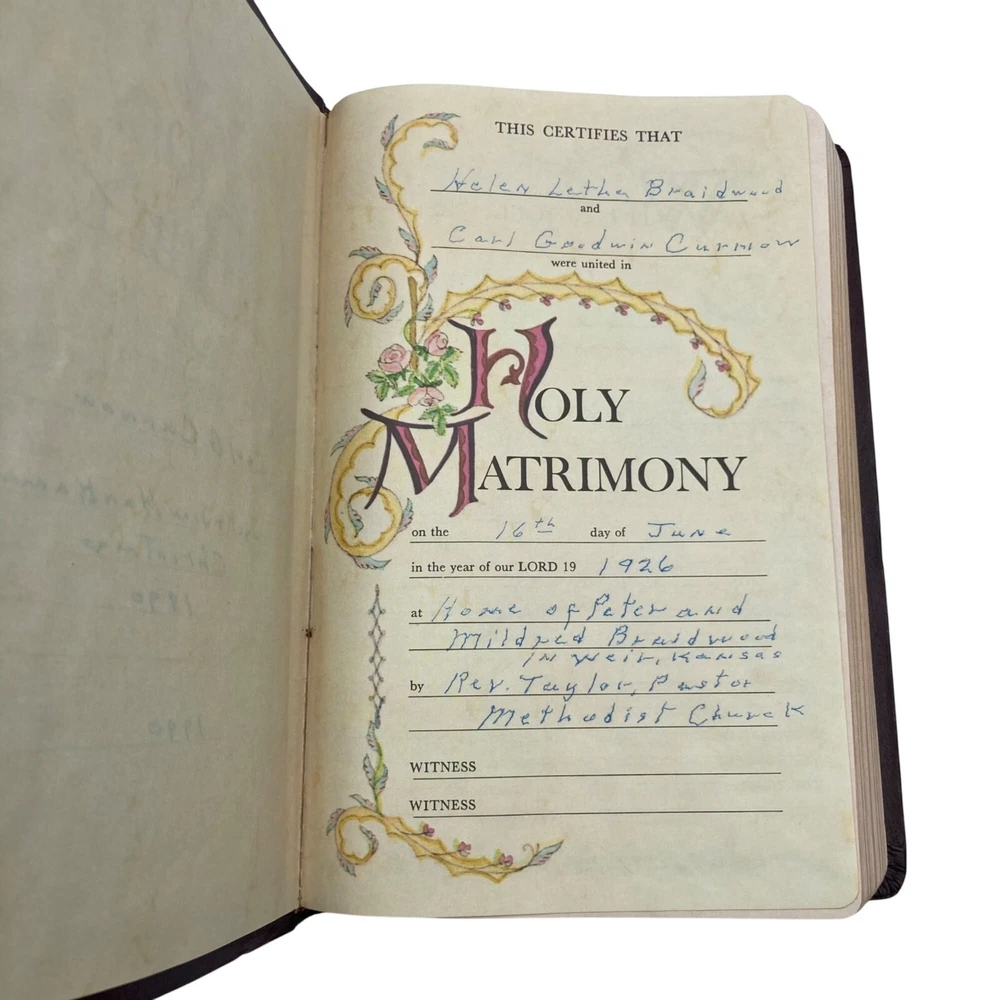 THIS CERTIFIES THAT
Helen Letha Braidwood
and
Carl Goodwin Curnow
were united in
HOLY
MATRIMONY
on the 16th day of June
in the year of our LORD 19 1926
at Home of Peter and
Mildred Braidwood
in Weir, Kansas
by Rev. Taylor, Pastor
Methodist Church
WITNESS
WITNESS